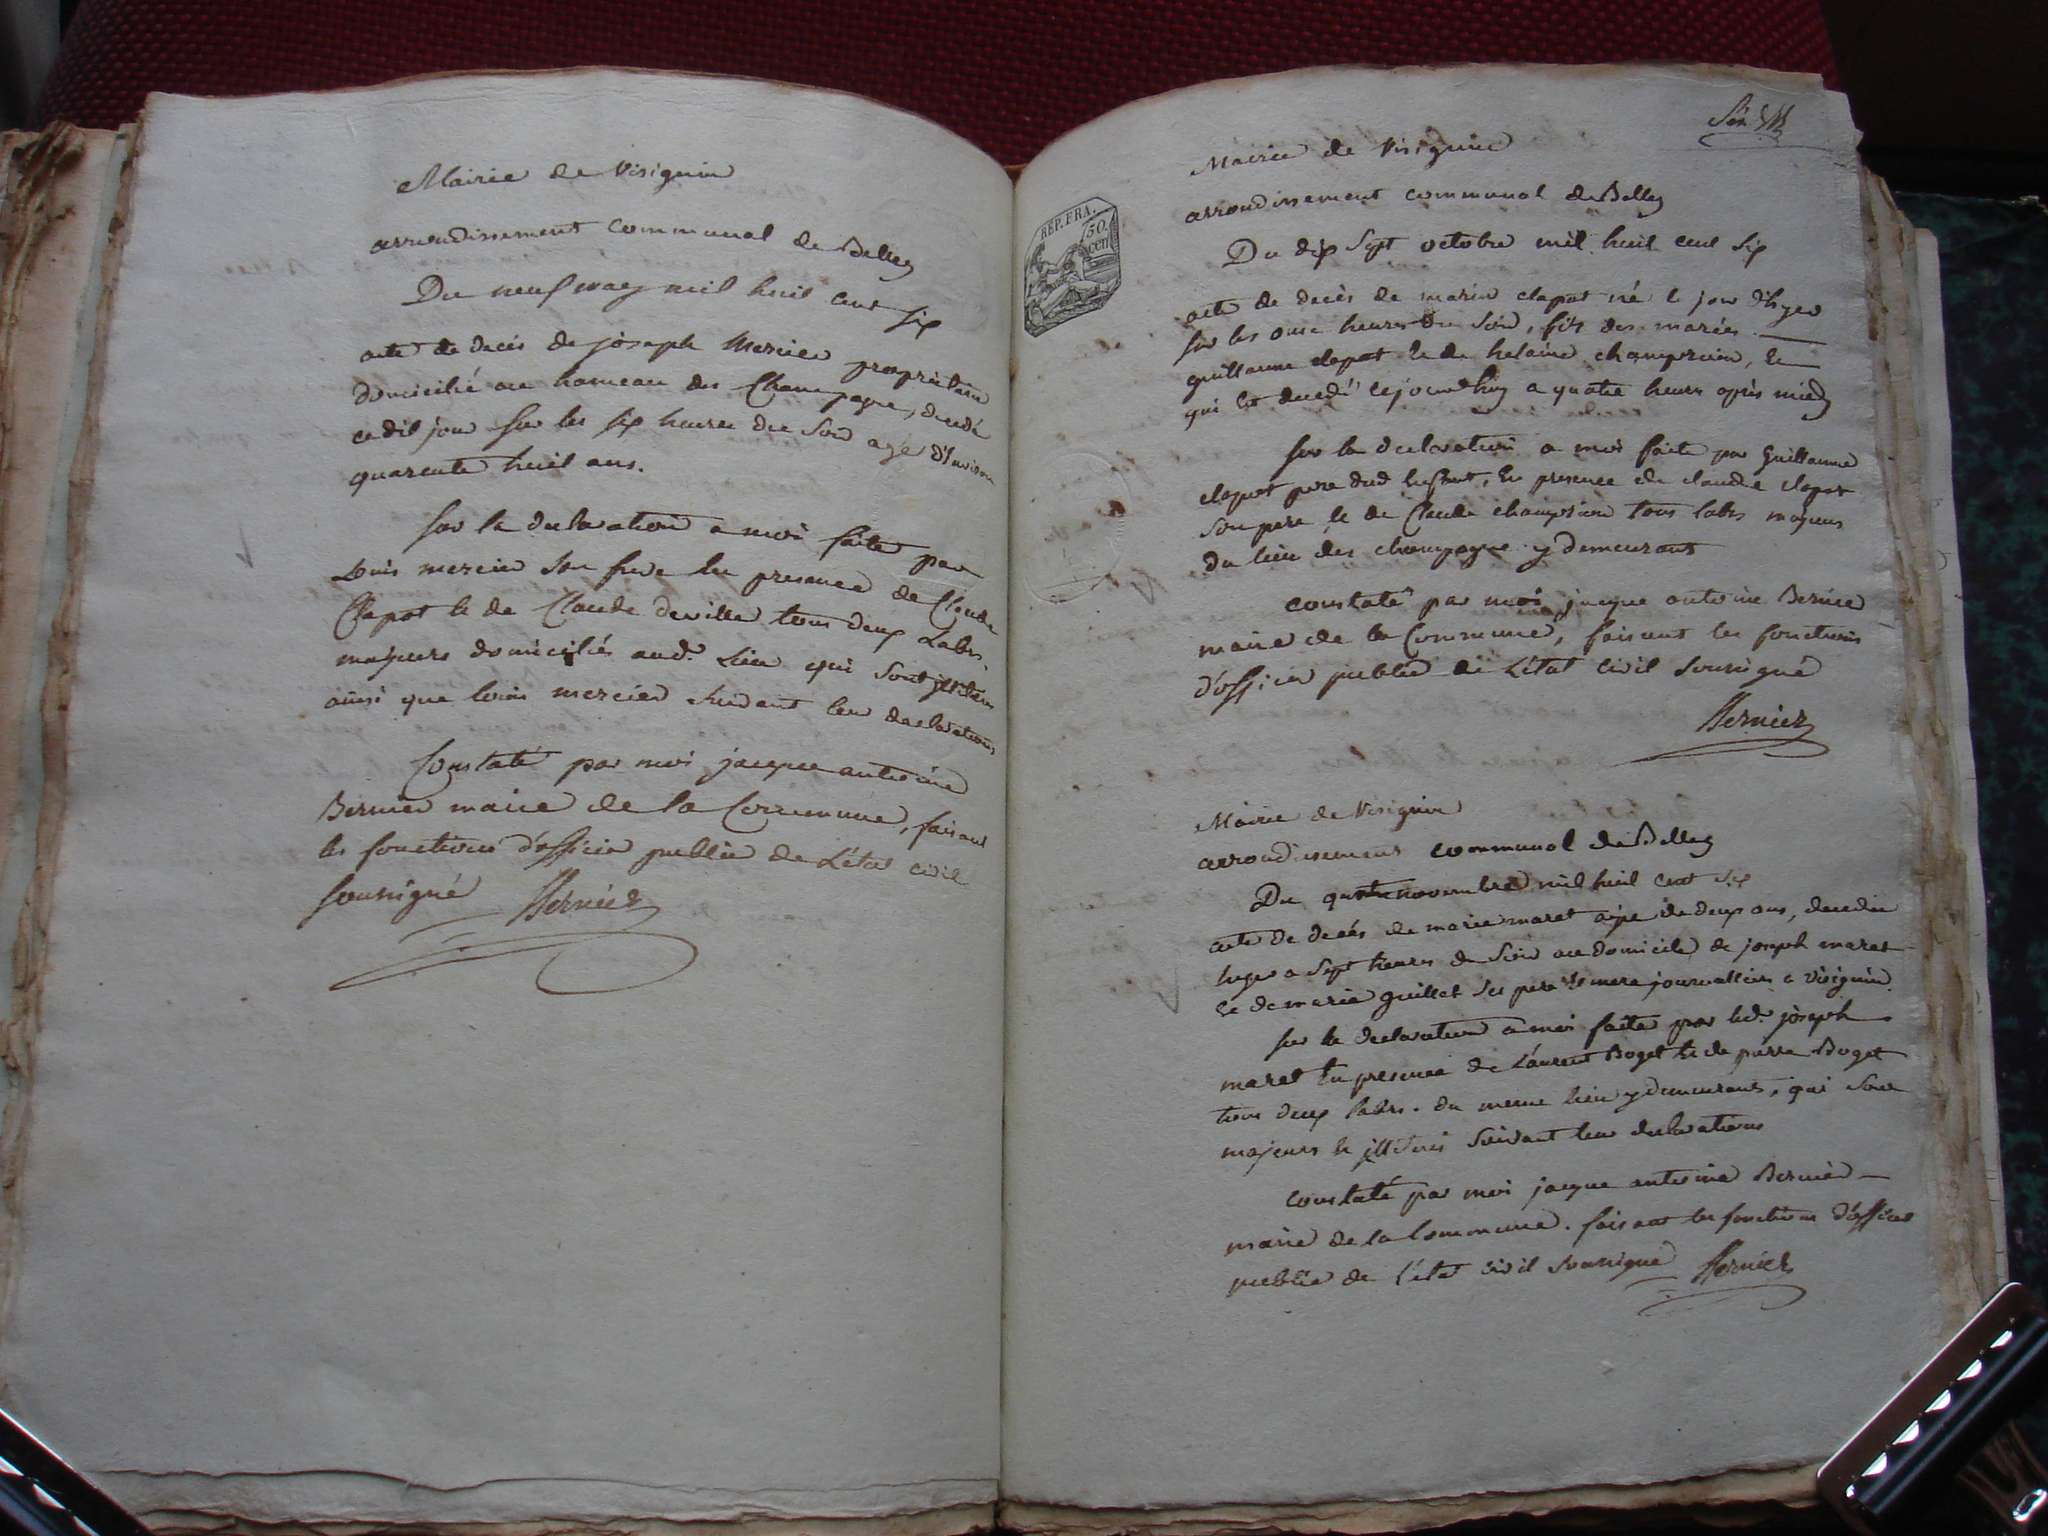 Mairie de Visignin
arrondissement communal de Belley
Du neuf may mil huit cent six
acte de decés de joseph Mercier propriétaire
domicilié au hameau des Champagne, decedé
cedit jour sur les six heures du soir agé d'environ
quarente huit ans.
sur la declaration a moi faite par
Louis mercier son frere en presence de Claude
Clapot et de Claude deville tous deux Labrs.
majeurs domiciliés aud. Lieu qui sont illiteres
ainsi que louis mercier suivant leur declarations
Constaté par moi jacque antoine
Bernier maire de la Commune, faisant
les fonctions d'officier public de L'état civil
soussigné Bernier
Mairie de Visignin
arrondissement communal de Belley
Du dix sept octobre mil huit cent six
acte de decès de marin clapot né le jour d'hyer
sur les onze heures du soir, fils des mariés
guillaume clapot et de helaine champrion, et
qui est decedé cejourdhuy a quatre heures après midy
sur la declaration a moi faite par Guillaume
clapot pere dud enfant, en presence de claude clapot
son pere et de Claude champrion tous labrs majeurs
du lieu des champagne y demeurants
constaté par moi jacque antoine Bernier
maire de la Commune, faisant les fonctions
d'officier public de L'état civil soussigné
Bernier
REP. FRA.
50.
cen
Mairie de Visignin
arrondissement communal de Belley
Du quatre novembre mil huit cent six
acte de decés de marie maret agée de deux ans, decedée
hyer a sept heures du soir au domicile de joseph maret
et de marie guillot ses pere et mere journalliers a visignin.
sur la declaration a moi faite par led. joseph
maret en presence de Laurent Boget et de pierre Boget
tous deux labrs. du meme lieu y demeurants, qui sont
majeurs et illiteres suivant leur declarations
constaté par moi jacque antoine Bernier
maire de la Commune. faisant les fonctions d'officier
public de l'état civil soussigné Bernier